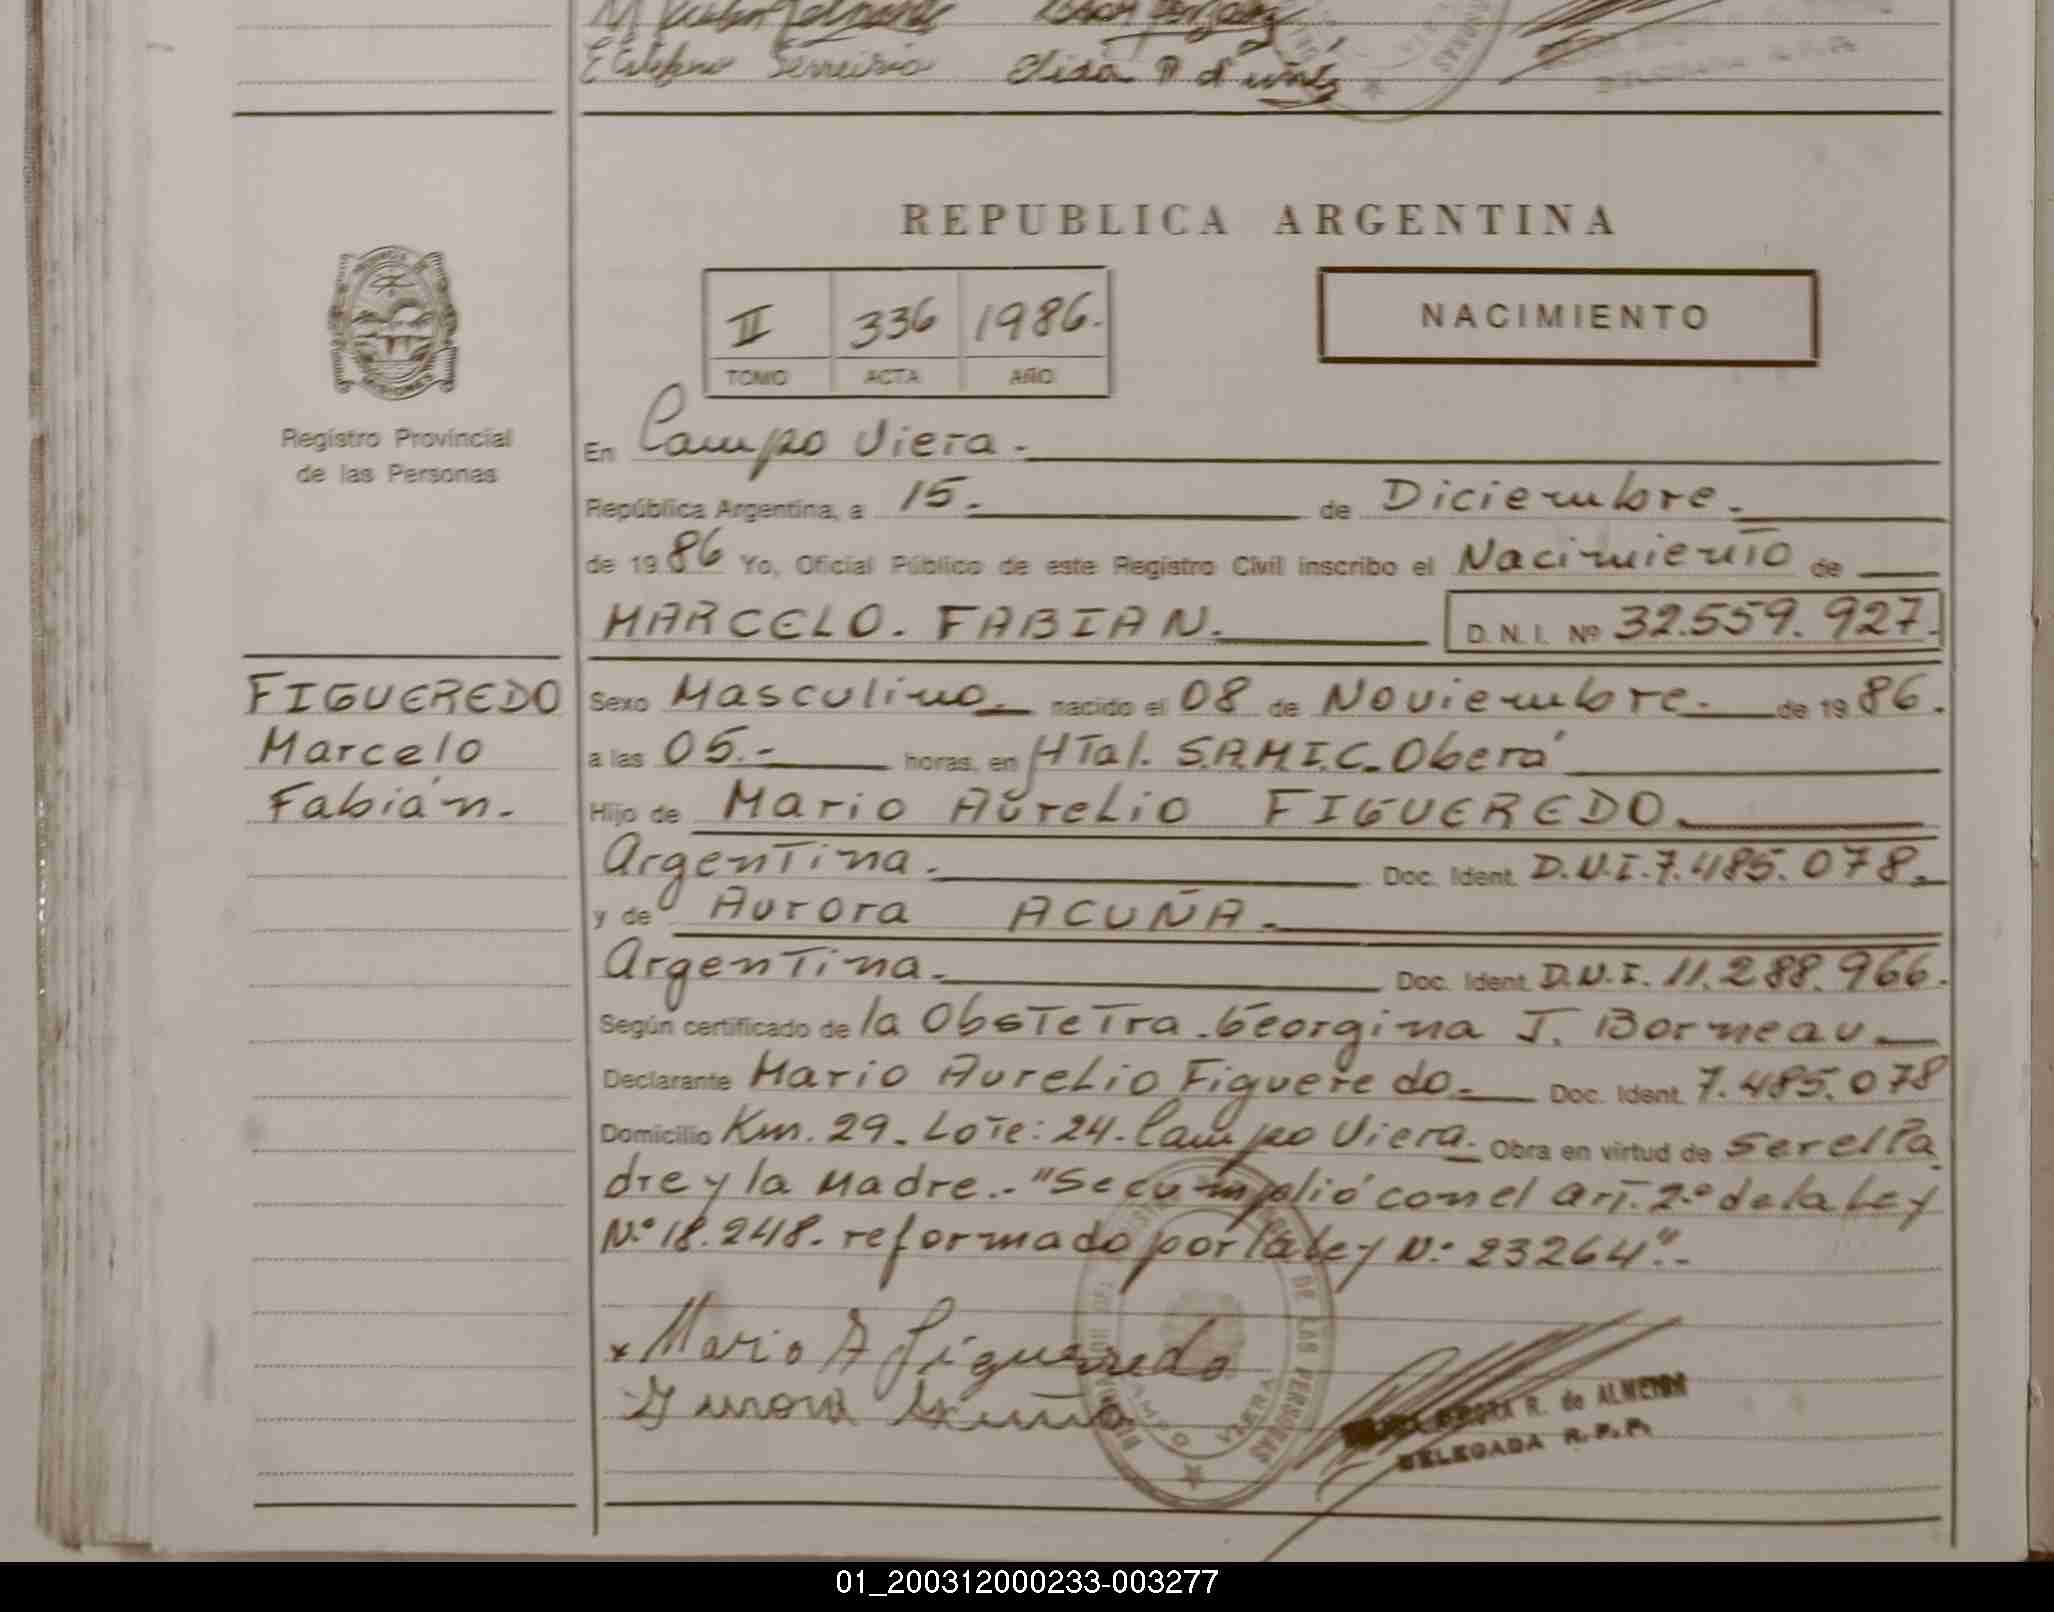 Elida
DELEGADA R.P.P.
REPUBLICA ARGENTINA
II 336 1986.
TOMO ACTA AÑO
NACIMIENTO
Registro Provincial
de las Personas
En Campo Viera.
República Argentina, a 15. de Diciembre.
de 1986 Yo, Oficial Público de este Registro Civil inscribo el Nacimiento de
MARCELO. FABIAN. D.N.I. Nº 32.559.927.
FIGUEREDO
Marcelo
Fabián.-
Sexo Masculino. nacido el 08 de Noviembre. de 1986.
a las 05.- horas, en HTal. S.A.M.I.C. Oberá
Hijo de Mario Aurelio FIGUEREDO.
Argentina. Doc. Ident. D.N.I. 7.485.078.
y de Aurora ACUÑA.
Argentina. Doc. Ident. D.N.I. 11.288.966.
Según certificado de la Obstetra. Georgina J. Borneau.
Declarante Mario Aurelio Figueredo. Doc. Ident. 7.485.078
Domicilio Km. 29. Lote: 24. Campo Viera. Obra en virtud de ser el Pa
dre y la Madre.- "Se cumplió con el art. 2.º de la Ley
N.º 18.248. reformado por la Ley N.º 23264".-
x Mario A Figueredo
Aurora Acuña
DE LAS PERSONAS
VIERA
R. de ALMEIDA
DELEGADA R.P.P.
01_200312000233-003277